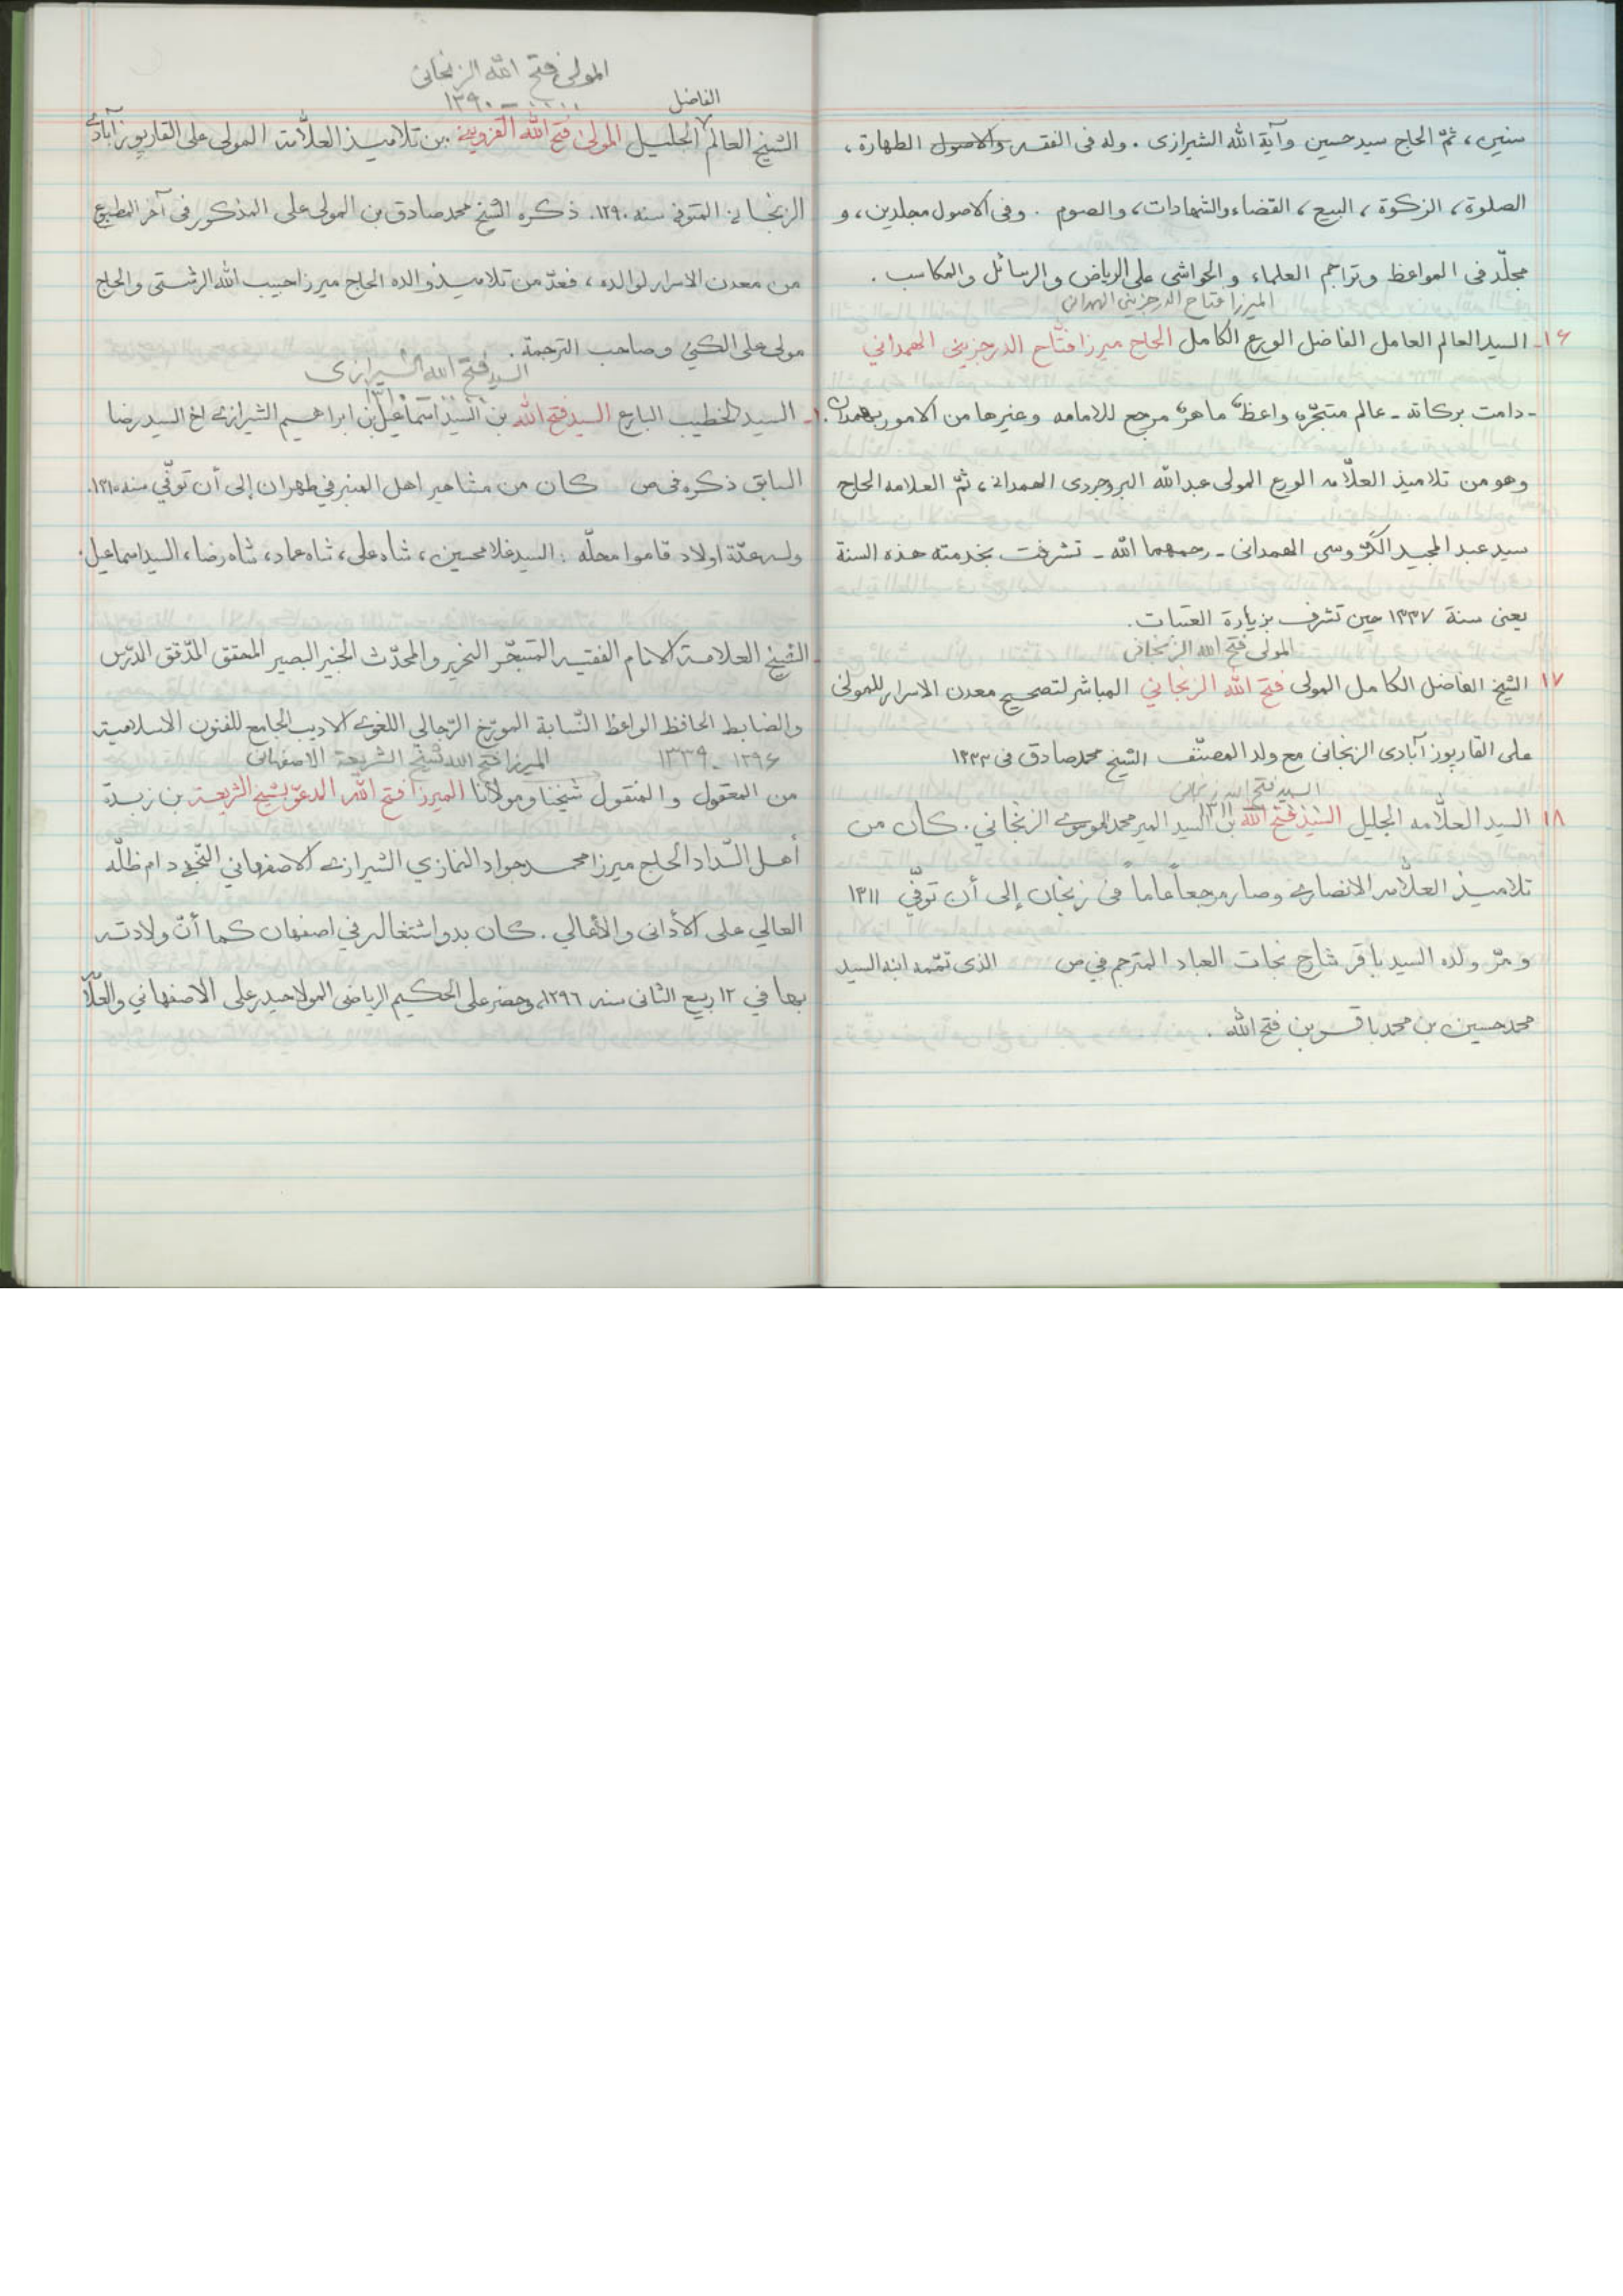 سنین، ثمّ الحاج سید حسین وآیة الله الشیرازی. وله فی الفقه والاصول الطهارة،
الصلوة، الزکوة، البیع، القضاء والشهادات، والصوم. وفی الاصول مجلدین، و
مجلّد فی المواعظ وتراجم العلماء والحواشی علی الریاض والرسائل والمکاسب.
المیرزا فتاح الدرجزینی الهمدانی
۱۶- السید العالم العامل الفاضل الورع الکامل الحاج میرزا فتّاح الدرجزینی الهمدانی
- دامت برکاته - عالم متبحّر، واعظ ماهر، مرجع للامامه وغیرها من الامور بهمدان.
وهو من تلامیذ العلّامه الورع المولی عبدالله البروجردی الهمدانی، ثمّ العلامه الحاج
سید عبدالمجید الگروسی الهمدانی - رحمهما الله - تشرفت بخدمته هذه السنة
یعنی سنة ۱۳۳۷ حین تشرف بزیارة العتبات.
المولی فتح الله الزنجانی
۱۷ الشیخ الفاضل الکامل المولی فتح الله الزنجانی المباشر لتصحیح معدن الاسرار للمولی
علی القارپوزآبادی الزنجانی مع ولد المصنّف الشیخ محمدصادق فی ۱۳۳۳
السید فتح الله زنجانی
۱۳۱۱
۱۸ السید العلّامه الجلیل السید فتح الله بن السید المیر محمد الموسوی الزنجانی. کان من
تلامیذ العلّامه الانصاری وصار مرجعاً عاماً فی زنجان إلی أن توفّی ۱۳۱۱
ومرّ ولده السید باقر شارح نجات العباد المترجم فی ص الذی تمّمه ابنه السید
محمدحسین بن محمدباقر بن فتح الله.
المولی فتح الله الزنجانی
۰۰۰۰ - ۱۳۹۰
الفاضل
الشیخ العالم الجلیل المولی فتح الله القزوینی من تلامیذ العلّامة المولی علی القارپوزآبادی
الزنجانی المتوفی سنه ۱۲۹۰. ذکره الشیخ محمدصادق بن المولی علی المذکور فی آخر المطبوع
من معدن الاسرار لوالده، فعدّ من تلامیذ والده الحاج میرزا حبیب الله الرشتی والحاج
مولی علی الکنی وصاحب الترجمة.
السید فتح الله الشیرازی
۰۰۰۰ - ۱۳۱۰
السید الخطیب البارع السید فتح الله بن السید اسماعیل بن ابراهیم الشیرازی اخ السید رضا
السابق ذکره فی ص کان من مشاهیر اهل المنبر فی طهران إلی أن توفّی سنه ۱۳۱۰.
وله عدّة اولاد قاموا محلّه: السید غلامحسین، شاه علی، شاه عماد، شاه رضا، السید اسماعیل.
الشیخ العلامة الامام الفقیه المتبحّر النحریر والمحدّث الخبیر البصیر المحقق المدّقق المدّرس
والضابط الحافظ الواعظ النسّابة المورّخ الرّجالی اللغوی الادیب الجامع للفنون الاسلامیة
المیرزا فتح الله شیخ الشریعة الاصفهانی ۱۲۹۶ - ۱۳۳۹
من المعقول والمنقول شیخنا ومولانا المیرزا فتح الله المدعو بشیخ الشریعة بن زبدة
أهل السّداد الحاج میرزا محمدجواد النمازي الشیرازی الاصفهاني النّجفی دام ظلّه
العالي علی الأدانی والأهالي. کان بدو اشتغاله في اصفهان کما أنّ ولادته
بها في ۱۲ ربیع الثانی سنه ۱۲۹۶، وحضر علی الحکیم الریاضی المولا حیدر علی الاصفهاني والعلّا